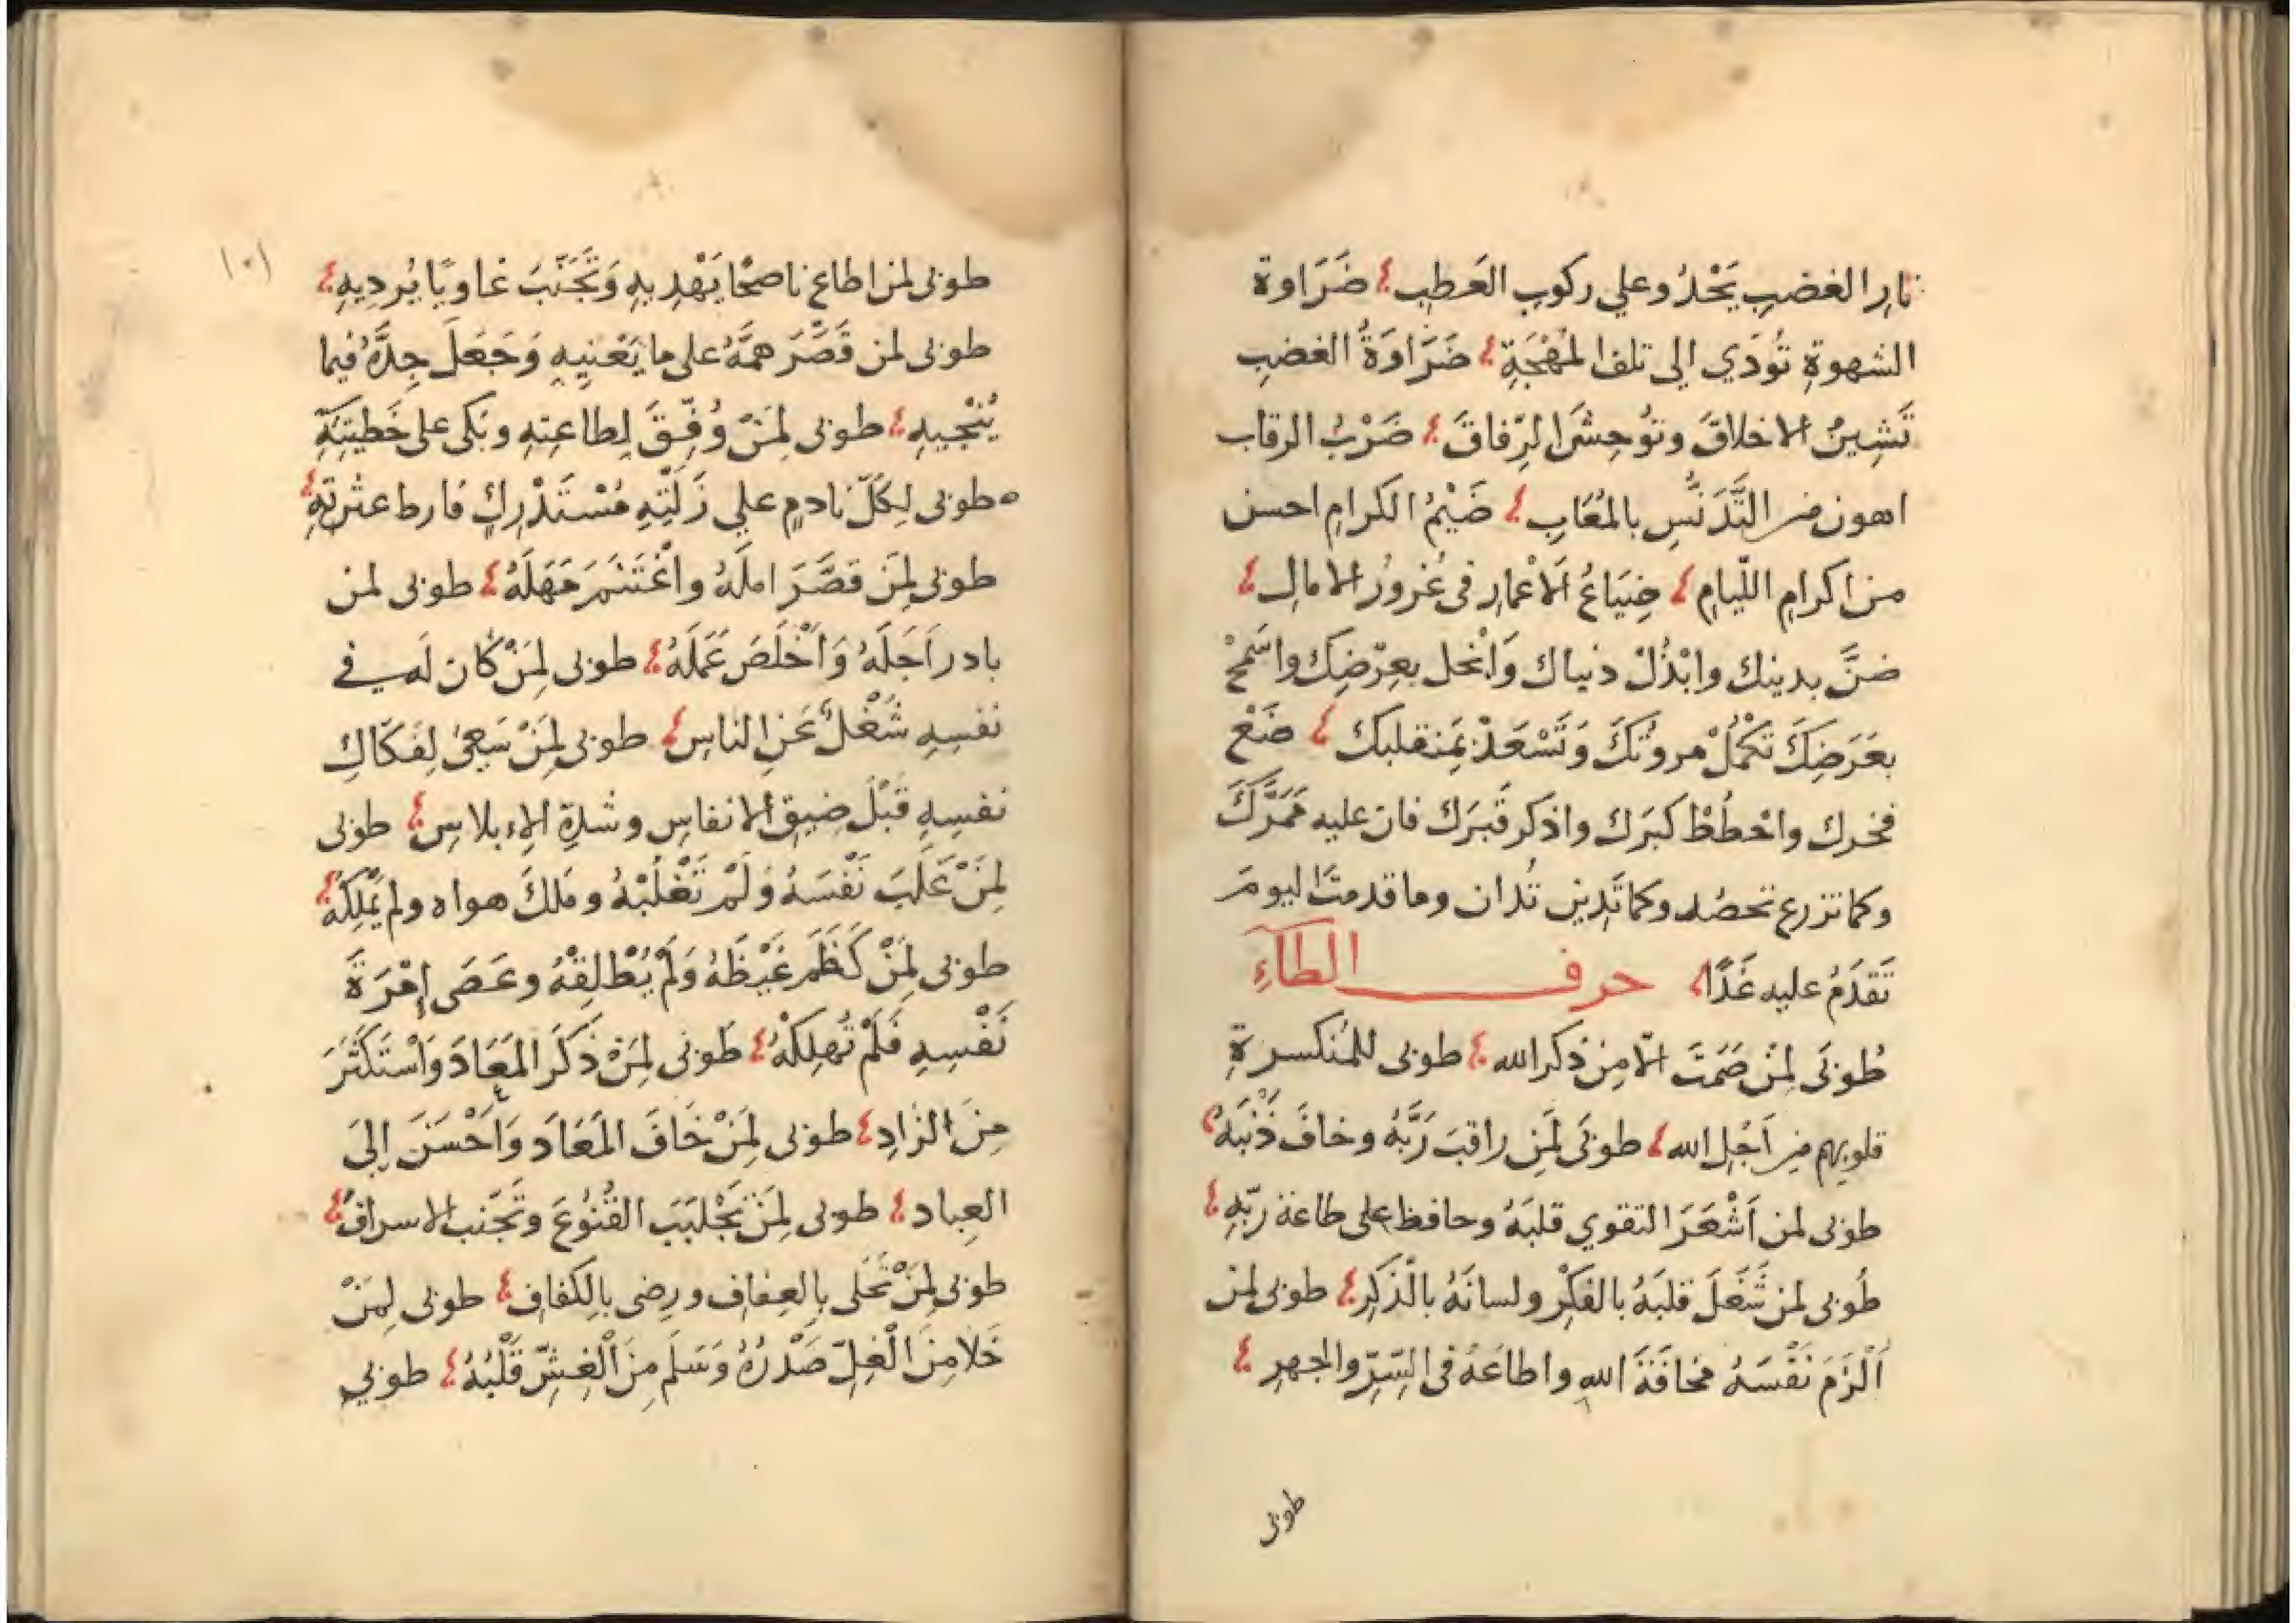 نارِ الغضبِ يَحْدُو علي ركوبِ العَطبِ ؛ ضَرَاوة
الشهوةِ تُودَي الى تلف المُهْجَةِ ؛ ضَرَاوَةُ الغضبِ
تَشِينُ الاخلاقَ وتوُحِشُ الرِّفاقَ ؛ ضَرْبُ الرقاب
اهون من التَّدَنُّسِ بالمُعَابِ ؛ ضَيْمُ الكرامِ احسن
من اكرامِ اللّيامِ ؛ ضِيَاعُ الاَعْمارِ فى غُرورُ الامالِ ؛
ضنَّ بدينك وابْذُلْ دنياك وَابْخل بعِرْضِك واسْمَحْ
بعَرَضِكَ تكْمُلْ مروئتكَ وَتَسْعَدْ بمنقلبكَ ؛ ضَعْ
فخرك واحْطُطْ كبَرَك واذكر قَبرَك فان عليه مَمَرَّكَ
وكما تزرع تحصُد وكما تَدِين تُدان وما قدمتَ اليومَ
تَقدَمُ عليه غَدًا ؛ حرف الطآءِ
طُوبَى لمَنْ صَمَتَ الّا مِن ذكر الله ؛ طوبى للمُنكسرةِ
قلوبهم من اَجْلِ الله ؛ طوبَى لمَن راقبَ رَبَّهُ وخافَ ذَنْبَهُ ؛
طوبى لمن اَشْعَرَ التقوي قلبَهُ وحافظ على طاعة ربّهِ ؛
طُوبى لمن شَغَلَ قلبَهُ بالفكِرْ ولسانَهُ بالذّكرِ ؛ طوبى لمن
اَلْزَمَ نَفْسَهُ مخافَةَ اللهِ واطاعَهُ فى السّرِّ والجهرِ ؛
طوبى
١٠١
طوبى لمن اطاع ناصحًا يَهْدِيهِ وَتَجَنّبَ غاويًا يُرديهِ ؛
طوبى لمن قَصَّرَ همَّهُ على ما يَعْنِيهِ وَجَعَلَ جِدَّهُ فيما
يُنْجيهِ ؛ طوبى لِمَنْ وُفّقَ لِطاعتِهِ وبَكى على خَطيئتِهِ
طوبى لِكلّ نادمٍ علي زَلّتِهِ مُسْتَدْرِكٍ فارط عثرتِهِ ؛
طوبى لِمَن قصَّرَ املَهُ واغْتَنَمَ مَهَلَهُ ؛ طوبى لمن
بادر اَجَلَهُ وَاَخْلَصَ عَمَلَهُ ؛ طوبى لِمَنْ كان لَه في
نفسِهِ شُغْلٌ عَنِ الناسِ ؛ طوبى لِمَنْ سَعِىَ لِفَكَاكِ
نفسِهِ قَبْلَ ضيقِ الانفاسِ وشدةِ الاِبلاسِ ؛ طوبى
لِمَنْ غَلَبَ نَفْسَهُ وَلَمْ تَغْلُبْهُ ومَلكَ هواه ولم يَمْلِكْهُ ؛
طوبى لِمَنْ كَظَمَ غَيْظَهُ وَلَمْ يُطْلِقْهُ وعَصَى إمْرَةَ
نَفْسِهِ فَلَمْ تُهلِكْهُ ؛ طَوبى لِمَنْ ذَكَرَ المَعَادَ وَاسْتَكْثَرَ
مِنَ الزادِ ؛ طوبى لِمَنْ خَافَ المَعَادَ وَاَحْسَنَ إلىَ
العِباد ؛ طوبى لِمَنْ تَجْلبَبَ القُنُوعَ وتَجَنّب الاسرافَ ؛
طوبى لِمَنْ تَحَلى بِالعِفاف ورضى بالِكَفاف ؛ طوبى لِمَنْ
خَلا مِنَ الْغِلّ صَدْرُهُ وَسَلَمَ مِنَ الْغِشّ قَلْبُهُ ؛ طوبى